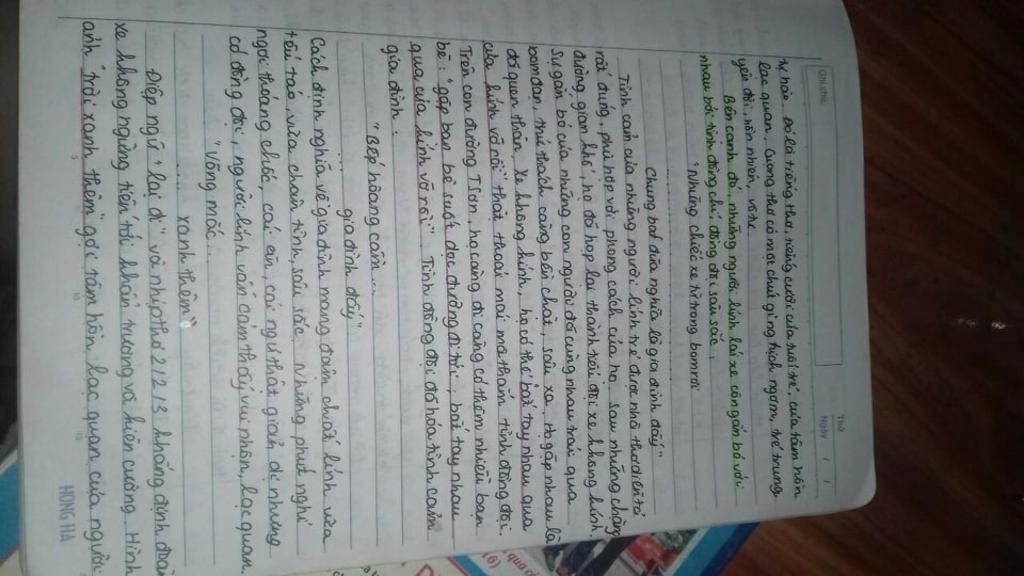 CHỦ ĐỀ:
Thứ
Ngày / /
tự hào. Đó là tiếng thơ, tiếng cười của tuổi trẻ, của tâm hồn
lạc quan, cương thơ có một chút gì nghịch ngợm, trẻ trung,
yêu đời, hồn nhiên, vô tư.
Bên cạnh đó, những người lính lái xe còn gắn bó với
nhau bởi tình đồng chí, đồng đội sâu sắc
"Những chiếc xe từ trong bom rơi
Chung bát đũa nghĩa là gia đình đấy"
Tình cảm của những người lính trẻ được nhà thơ diễn tả
rất đúng, phù hợp với phong cách của họ. Sau những chặng
đường gian khổ, họ đã họp lại thành tiểu đội xe không kính.
Sự gắn bó của những con người đã cùng nhau trải qua
bom đạn, thử thách càng bền chặt, sâu xa. Họ gặp nhau là
đã quen thân. Xe không kính, họ có thể bắt tay nhau qua
cửa kính vỡ rồi" thật thoải mái mà thắm tình đồng đội.
Trên con đường TSơn, họ càng đi càng có thêm nhiều bạn
bè: "gặp bạn bè suốt dọc đường đi tới, bắt tay nhau
qua cửa kính vỡ rồi". Tình đồng đội đã hóa tình cảm
gia đình.
"Bếp Hoàng cầm...
... gia đình đấy"
Cách định nghĩa về gia đình mang đậm chất lính vừa
tếu táo, vừa chân tình, sâu sắc. Những phút nghỉ
ngơi thoáng chốc, cái ăn, cái ngủ thật giản dị nhưng
có đồng đội, người lính vẫn cảm thấy vui nhộn, lạc quan.
"Võng mắc...
.... xanh thêm"
Điệp ngữ "lại đi" và nhịp thơ 2/2/3 khẳng định đoàn
xe không ngừng tiến tới khẩn trương và kiên cường. Hình
ảnh "trời xanh thêm" gợi tâm hồn lạc quan của người
HONG HA
(6)